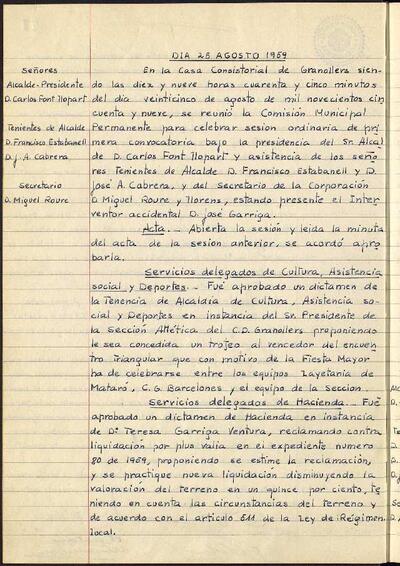 DIA 25 AGOSTO 1959
Señores
Alcalde-Presidente
D. Carlos Font llopart
Tenientes de Alcalde
D. Francisco Estabanell
D. J. A. Cabrera
Secretario
D. Miguel Roure
En la Casa Consistorial de Granollers sien-
do las diez y nueve horas cuarenta y cinco minutos
del dia veinticinco de agosto de mil novecientos cin
cuenta y nueve, se reunió la Comisión Municipal
Permanente para celebrar sesion ordinaria de pri
mera convocatoria bajo la presidencia del Sr. Alcal
de D. Carlos Font llopart y asistencia de los seño
res Tenientes de Alcalde D. Francisco Estabanell y D.
José A. Cabrera, y del Secretario de la Corporación
D. Miguel Roure y llorens, estando presente el Inter
ventor accidental D. José Garriga.
Acta.- Abierta la sesión y leida la minuta
del acta de la sesión anterior, se acordó apro
barla.
Servicios delegados de Cultura, Asistencia
social y Deportes.- Fué aprobado un dictamen de
la Tenencia de Alcaldia de Cultura, Asistencia so-
cial y Deportes en instancia del Sr. Presidente de
la Sección Atlética del C.D. Granollers proponiendo
le sea concedida un trofeo al vencedor del encuen
tro triangular que con motivo de la Fiesta Mayor
ha de celebrarse entre los equipos Layetania de
Mataró, C.G. Barcelones y el equipo de la Seccion.
Servicios delegados de Hacienda.- Fué
aprobado un dictamen de Hacienda en instancia
de Dª Teresa Garriga Ventura, reclamando contra
liquidación por plus valia en el expediente numero
80 de 1959, proponiendo se estime la reclamación,
y se practique nueva liquidación disminuyendo la
valoración del terreno en un quince por ciento, te
niendo en cuenta las circunstancias del terreno y
de acuerdo con el articulo 511 de la Ley de Régimen
local.